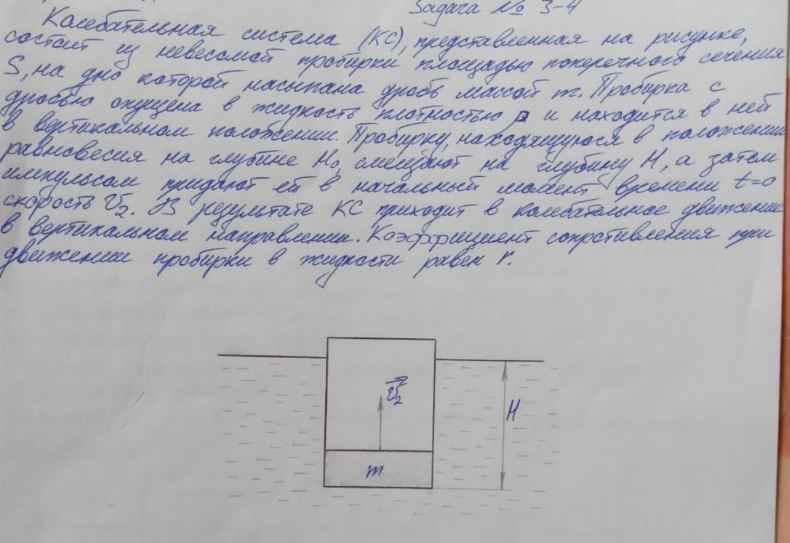 Задача № 3-4
Колебательная система (КС), представленная на рисунке,
состоит из невесомой пробирки площадью поперечного сечения
S, на дно которой насыпана дробь массой m. Пробирка с
дробью опущена в жидкость плотностью ρ и находится в ней
в вертикальном положении. Пробирку, находящуюся в положении
равновесия на глубине H₀, смещают на глубину H, а затем
импульсом придают ей в начальный момент времени t=0
скорость V₂. В результате КС приходит в колебательное движение
в вертикальном направлении. Коэффициент сопротивления при
движении пробирки в жидкости равен r.
V₂
H
m